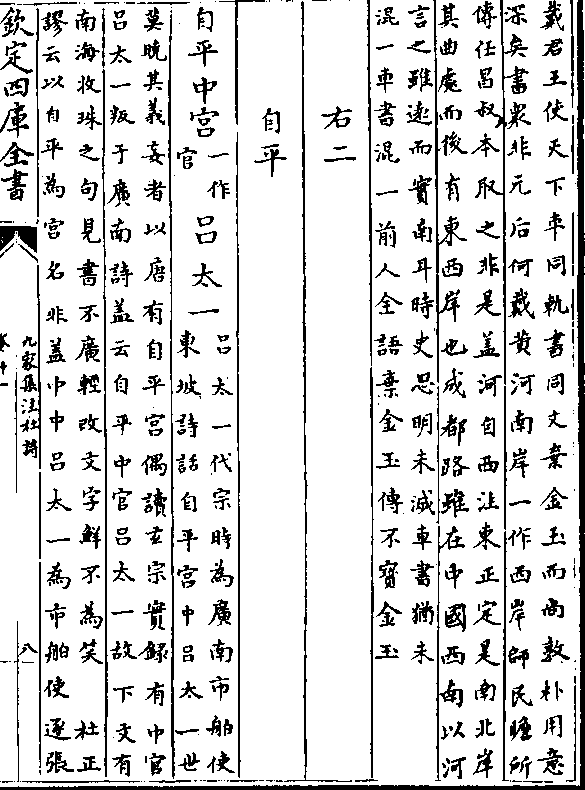 戴君王使天下車同軌書同文棄金玉而尚敦朴用意
深矣書衆非元后何戴黄河南岸一作西岸師民瞻所
傳任昌叔本取之非是盖河自西注東正定是南北岸
其曲處而後有東西岸也成都路雖在中國西南以河
言之雖逺而實南耳時史思明未滅車書猶未
混一車書混一前人全語棄金玉傳不寳金玉
右二
自平
自平中宫一作官吕太一吕太一代宗時為廣南市舶使
東坡詩話自平宫中吕太一世
莫曉其義妄者以唐有自平宫偶讀玄宗實録有中官
吕太一叛于廣南詩盖云自平中官吕太一故下文有
南海收珠之句見書不廣輕改文字鮮不為笑 杜正
謬云以自平為宫名非盖中中吕太一為市舶使逐張
欽定四庫全書
九家集注杜詩
卷十一
八